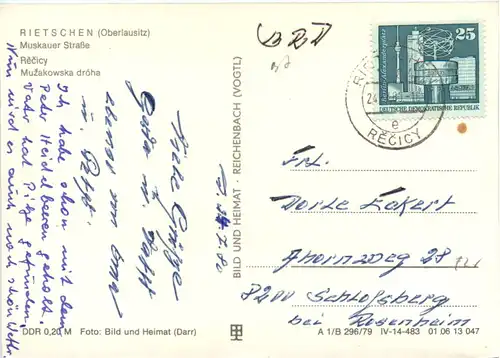 RIETSCHEN (Oberlausitz)
Muskauer Straße
Rěčicy
Mužakowska dróha
Ich habe schon mit dem
Peter Heidelbeeren geholt.
Vater hat Pilze gefunden.
Nun wird es auch noch schön
Viele Grüße
ebenso von Oma
u.
BILD UND HEIMAT · REICHENBACH (VOGTL)
BRD
25
Berlin, Alexanderplatz
DEUTSCHE DEMOKRATISCHE REPUBLIK
24
e
RĚČICY
Frl.
Dorte Eckert
Ahornweg 28
8200 Schloßberg
bei Rosenheim
DDR 0,20 M Foto: Bild und Heimat (Darr)
A 1/B 296/79 IV-14-483 01 06 13 047